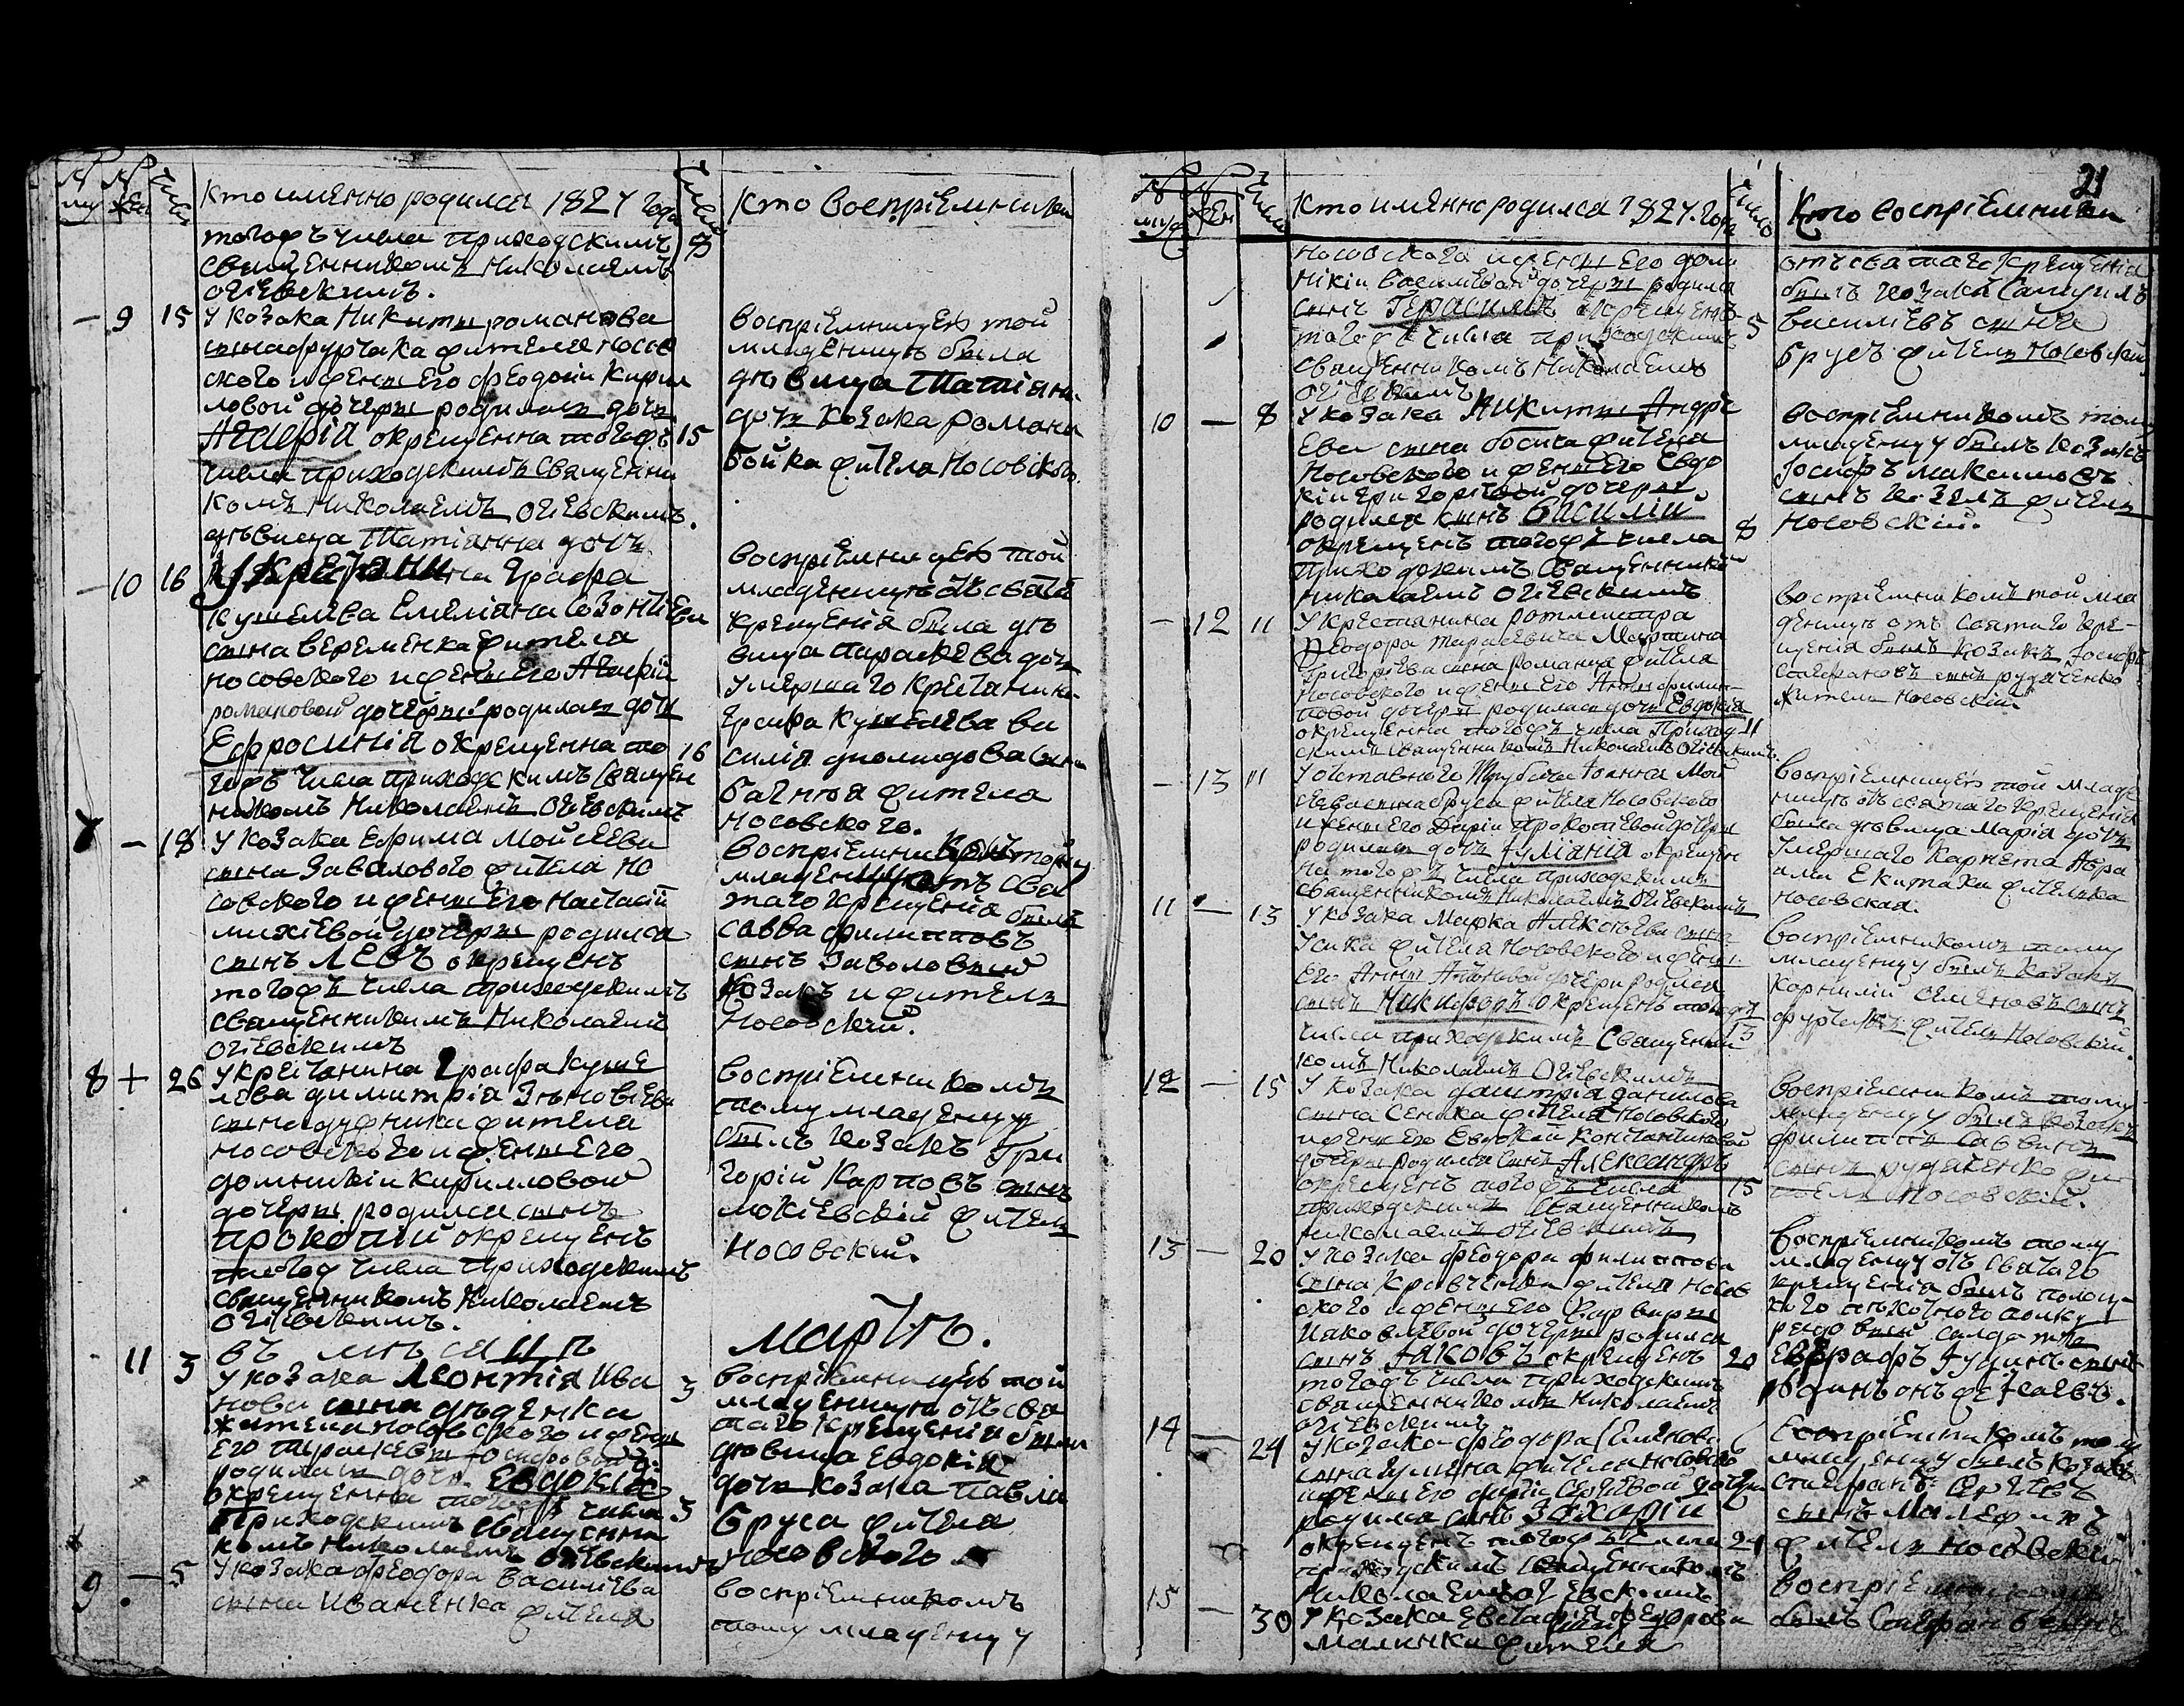 кто имянно родился 1827 года
кто воспріемники
тогожъ числа приходскимъ
священникомъ Николаемъ
огіевскимъ.
9 15 У козака Никиты романова
сына фурсака жителя носов
ского и жены его феодосіи Кирил
ловой дочеры родилась дочь
Агафія окрещенна тогожъ 15
числа приходскимъ священни
комъ Николаемъ огіевскимъ.
дѣвица Татіянна дочь
воспріемницею той
младеницѣ была
дѣвица Татіяна
дочь козака романа
бойка жителя Носовского.
10 16 графа
кушелева Емеліяна Созонтіева
сына веременка жителя
носовского и жены его Агафіи
романовой дочеры родилась дочь
Ефросинія окрещенна то 16
гожъ числа приходскимъ священ
никомъ Николаемъ огіевскимъ
воспріемницею той
младеницѣ отъ свята
крещенія была дѣ
вица параскева дочь
умершаго крестянина
графа кушелева ва
силія
жителя
носовского.
7 18 У козака Ефима Мойсеева
сына Завалового жителя но
совского и жены его Настасіи
михіевой дочеры родился
сынъ Левъ окрещенъ
тогожъ числа приходскимъ
священникомъ Николаемъ
огіевскимъ
воспріемникомъ тому
младенцу отъ свя
таго крещенія былъ
савва филипповъ
сынъ Заволовый
козакъ и житель
Носовскій.
8 26 У крестянина графа куше
лева димитрія Зѣновіева
сына дудника жителя
носовского и жены его
домникіи кирилловой
дочеры родился сынъ
прокопій окрещенъ
тогож числа приходскимъ
священникомъ Николаемъ
огіевскимъ.
воспріемникомъ
тому младенцу
былъ козакъ Гри
горій Карповъ сынъ
мокіевскій житель
Носовскій.
въ мѣсяцѣ мартѣ.
11 3 У козака Леонтія Ива
нова сына дѣденка
жителя носовского и жены
его параскевы Іосифовой
родилась дочь Евдокія
окрещенна тогожъ числа 3
приходскимъ священни
комъ Николаемъ огіевскимъ
воспріемницею той
младеницѣ отъ свя
таго крещенія была
дѣвица Евдокія
дочь козака павла
Бруса жителя
носовского
9 5 У козака феодора василіева
сына Иваненка жителя
воспріемникомъ
тому младенцу
21
кто имянно родился 1827. года
Кто воспріемники
носовского и жены его дом
никіи василіевой дочеры родился
сынъ Герасимъ окрещенъ
тогожъ числа приходскимъ 5
священникомъ Николаемъ
огіевскимъ
отъ святаго крещенія
былъ козакъ Самуилъ
василіевъ сынъ
брусъ житель Носовскій
10 8 У козака Никиты Андре
ева сына босика жителя
Носовского и жены его Евдо
кіи григоріевой дочеры
родился сынъ Василій
окрещенъ тогожъ числа 8
приходскимъ священникомъ
Николаемъ огіевскимъ
воспріемникомъ тому
младенцу былъ козакъ
Іосифъ максимовъ
сынъ козелъ житель
Носовскій.
12 11 У крестянина ротмистра
Феодора тарасевича Мартина
Григоріева сына романца жителя
Носовского и жены его Анны филип
повой дочеры родилась дочь Евдокія
окрещенна тогожъ числа приход 11
скимъ священникомъ Николаемъ огіевскимъ.
воспріемникомъ той мла
деницѣ отъ святаго кре-
щенія былъ козакъ Іосифъ
Стефановъ сынъ рудченко
житель носовскій
13 11 У отставного трубача Іоанна Мой
сеева сына бруса жителя Носовского
и жены его Дарій прокопіевой дочеры
родилась дочь Іуліанія окрещен
на тогожъ числа приходскимъ
священникомъ Николаемъ огіевскимъ
воспріемницею той младе
ницѣ отъ святаго крещенія
была дѣвица марія дочь
умершаго Корнета Авра
ама жителка
носовская.
11 13 У козака Марка Алексѣева сына
Усика жителя Носовского и жены
его Анны Антоновой дочери родился
сынъ Никифоръ окрещенъ тогожъ
числа приходскимъ священни 13
комъ Николаемъ Огіевскимъ
воспріемникомъ тому
младенцу былъ козакъ
Корнилій семеновъ сынъ
фурсакъ житель Носовскій.
12 15 У козака димитрія данилова
сына Сенька жителя Носовского
и жены его Евдокіи константиновой
дочеры родился сынъ Александръ
окрещенъ тогожъ числа 15
приходскимъ священникомъ
николаемъ огіевскимъ
воспріемникомъ тому
младенцу былъ козакъ
филиппъ саввинъ
сынъ рудченко жи
тель Носовскій.
13 20 У козака феодора филиппова
сына кравченка жителя носов
ского и жены его варвары
Іаковлевой дочеры родился
сынъ Іаковъ окрещенъ 20
тогожъ числа приходскимъ
священникомъ Николаемъ
огіевскимъ
воспріемникомъ тому
младенцу отъ святаго
крещенія былъ полоц-
кого пѣхотного полку
рядовый салдатъ
Евграфъ сынъ
14 24 У козака феодора Семенова
сына жителя носовского
и жены его Сергіевой дочеры
родился сынъ Захарій
окрещенъ тогожъ числа 24
приходскимъ священникомъ
Николаемъ огіевскимъ
воспріемникомъ тому
младенцу былъ козакъ
стефанъ Сергіевъ
сынъ
житель носовскій
15 30 У козака Евстафія федорова
малинки жителя
воспріемникомъ
былъ Стефанъ